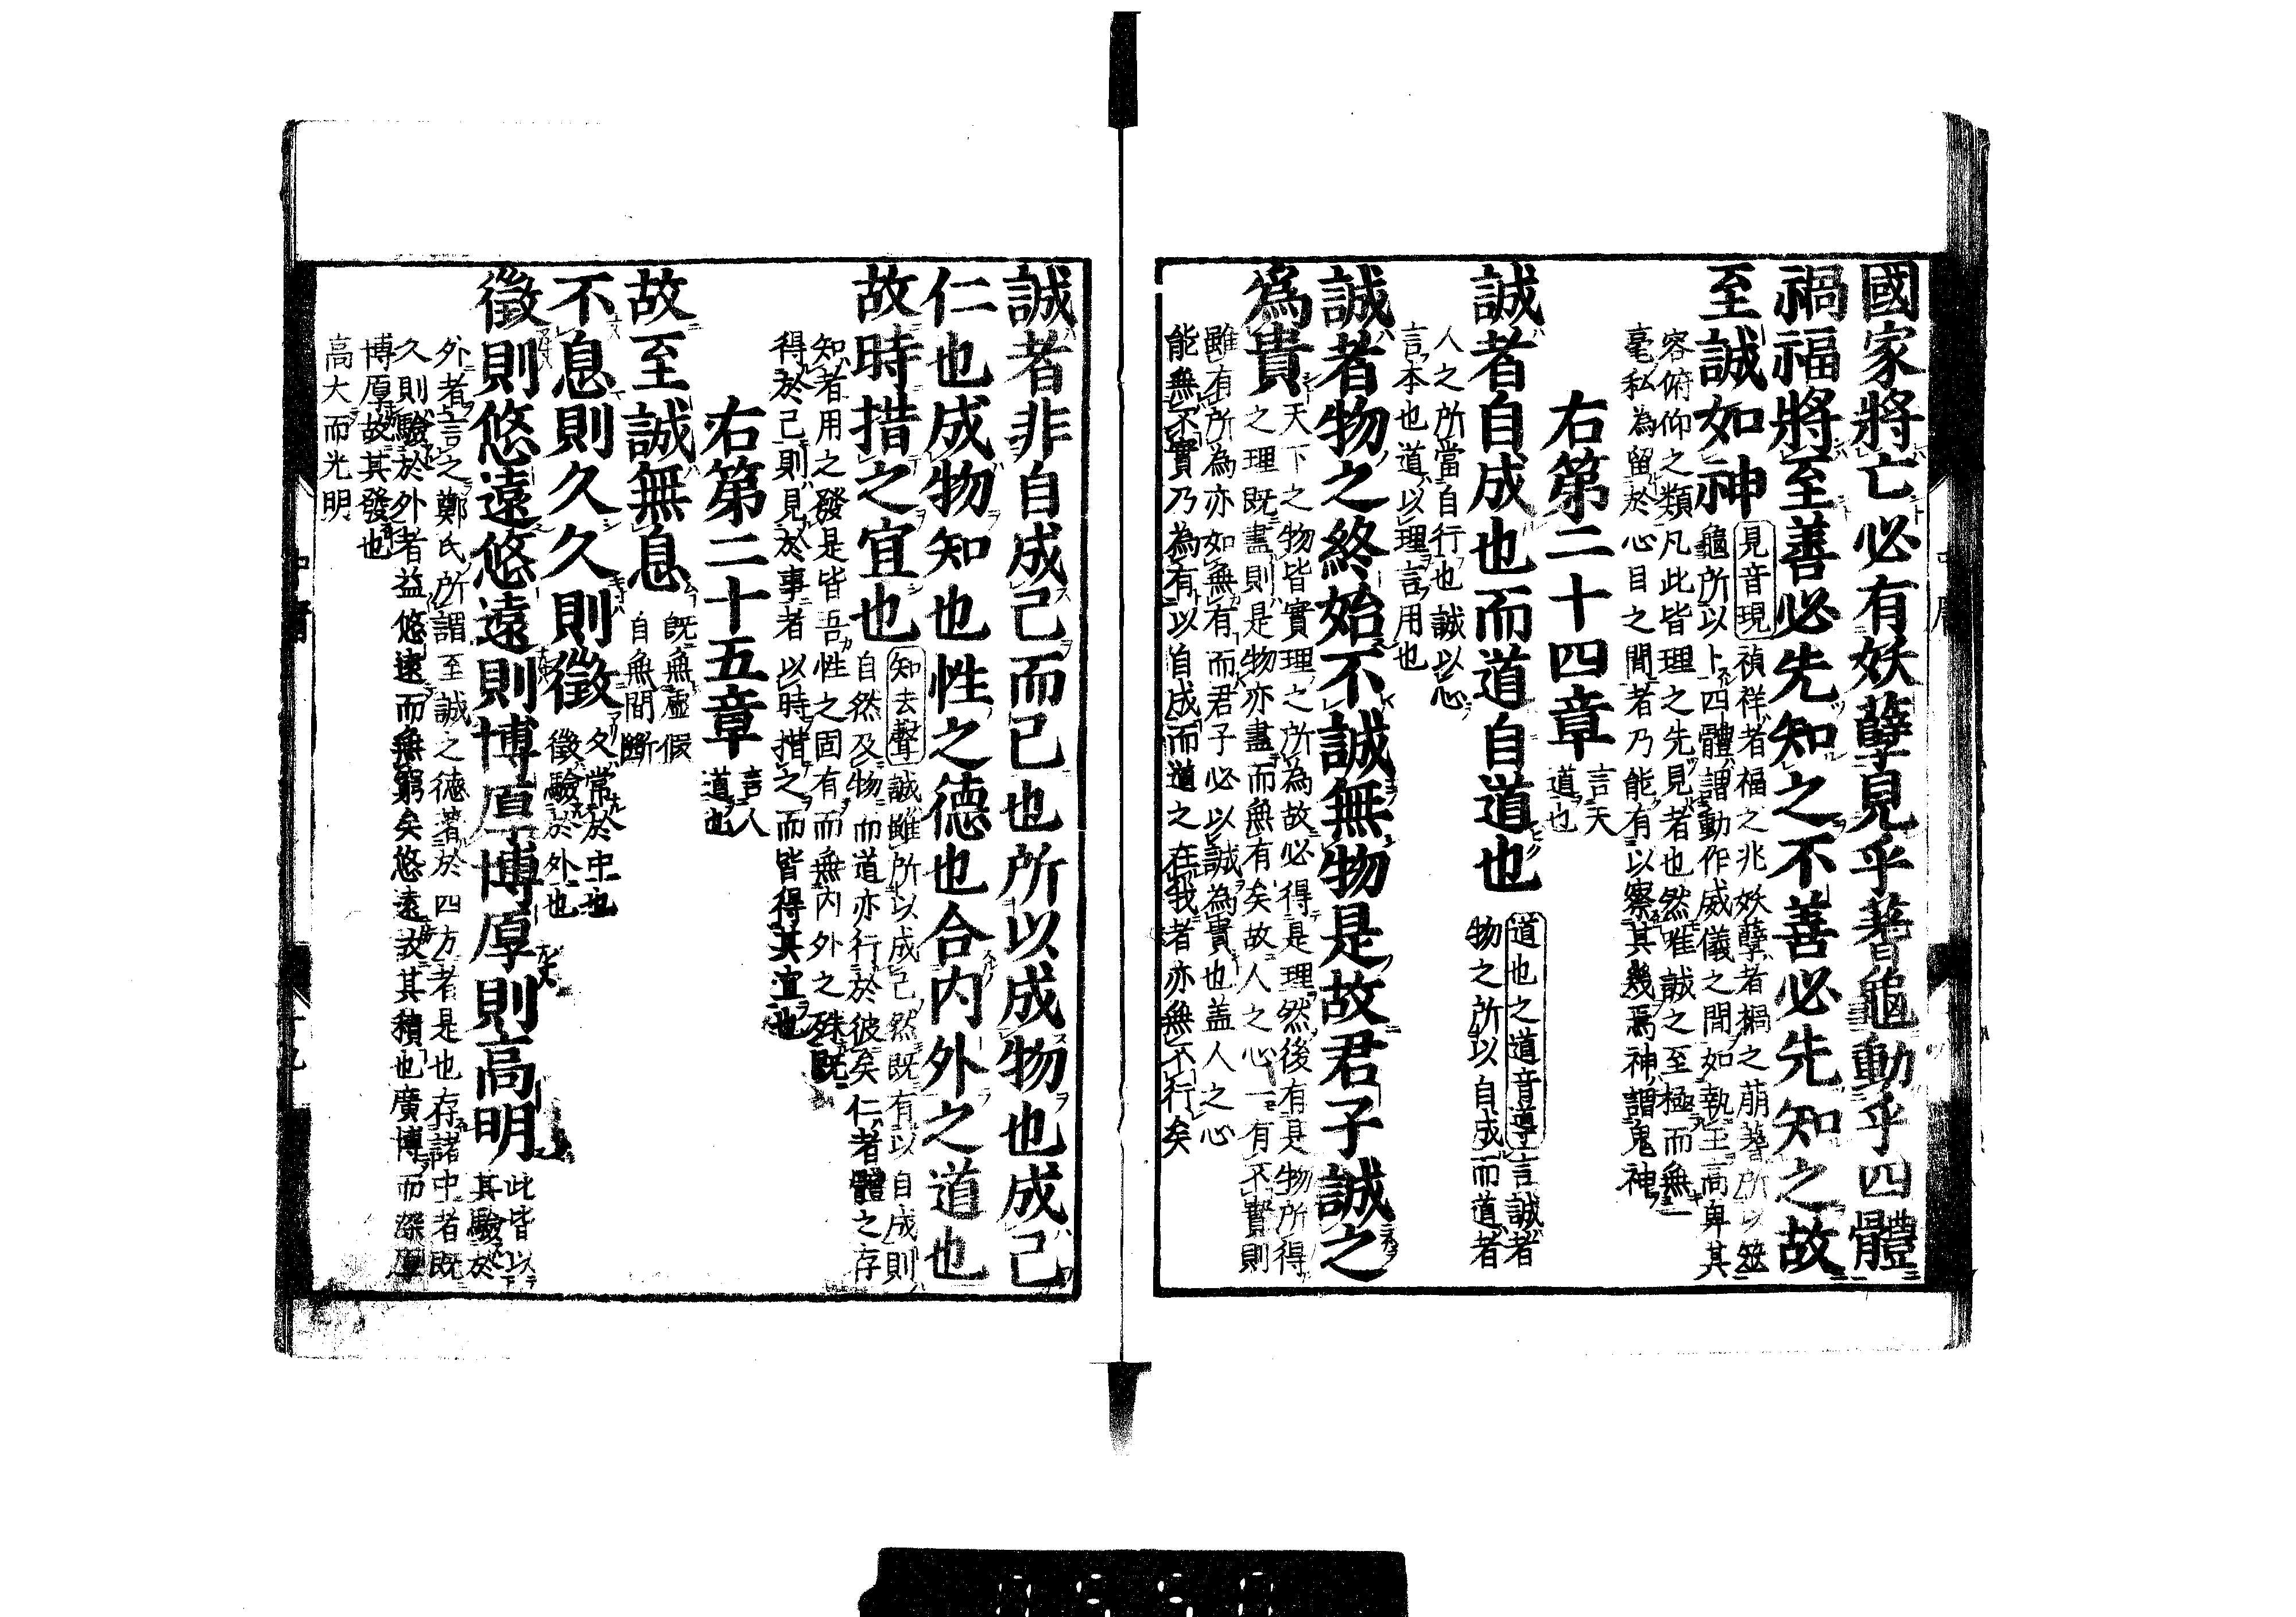 國家將亡必有妖孽見乎蓍龜動乎四體
禍福將至善必先知之不善必先知之故
至誠如神
見音現
禎祥者福之兆妖孽者禍之萠蓍所以筮
龜所以卜四體謂動作威儀之間如執玉高卑其
容俯仰之類凡此皆理之先見者也然唯誠之至極而無一
毫私為留於心目之間者乃能有以察其幾焉神謂鬼神
右第二十四章
言天
道也
誠者自成也而道自道也
道也之道音導
言誠者
物之所以自成而道者
人之所當自行也誠以心
言本也道以理言用也
誠者物之終始不誠無物是故君子誠之
為貴
天下之物皆實理之所為故必得是理然後有是物所得
之理既盡則是物亦盡而無有矣故人之心一有不實則
雖有所為亦如無有而君子必以誠為貴也盖人之心
能無不實乃為有以自成而道之在我者亦無不行矣
誠者非自成己而已也所以成物也成己
仁也成物知也性之德也合内外之道也
故時措之宜也
知去聲
誠雖所以成己然既有以自成則
自然及物而道亦行於彼矣仁者體之存
知者用之發是皆吾性之固有而無内外之殊既
得於己則見於事者以時措之而皆得其宜也
右第二十五章
言人
道也
故至誠無息
既無虛假
自無間斷
不息則久久則徵
久常於中也
徵驗於外也
徵則悠遠悠遠則博厚博厚則高明
此皆以
其驗於
外者言之鄭氏所謂至誠之德著於四方者是也存諸中者既
久則驗於外者益悠遠而無窮矣悠遠故其積也廣博而深厚
博厚故其發也
高大而光明